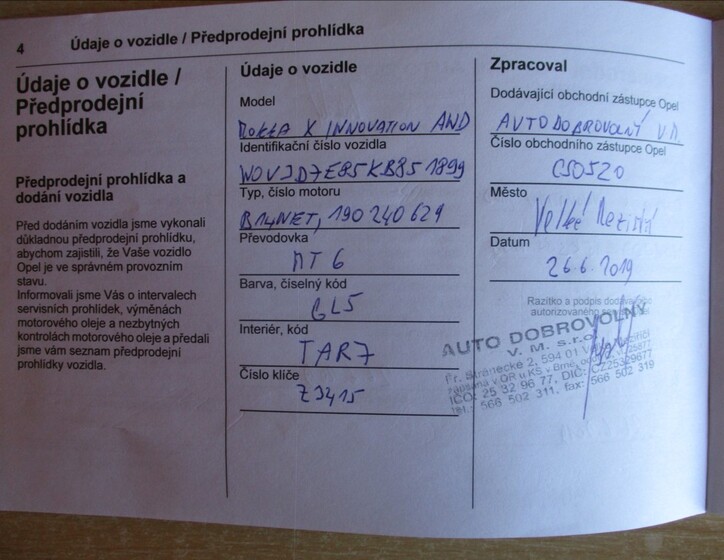 4 Údaje o vozidle / Předprodejní prohlídka
Údaje o vozidle /
Předprodejní
prohlídka
Předprodejní prohlídka a
dodání vozidla
Před dodáním vozidla jsme vykonali
důkladnou předprodejní prohlídku,
abychom zajistili, že Vaše vozidlo
Opel je ve správném provozním
stavu.
Informovali jsme Vás o intervalech
servisních prohlídek, výměnách
motorového oleje a nezbytných
kontrolách motorového oleje a předali
jsme vám seznam předprodejní
prohlídky vozidla.
Údaje o vozidle
Model
MOKKA X INNOVATION AWD
Identifikační číslo vozidla
W0VJD7E85KB851899
Typ, číslo motoru
B14NET, 190240629
Převodovka
MT 6
Barva, číselný kód
GL5
Interiér, kód
TAR7
Číslo klíče
Z3415
Zpracoval
Dodávající obchodní zástupce Opel
AUTO DOBROVOLNÝ V.M.
Číslo obchodního zástupce Opel
CS0520
Město
Velké Meziříčí
Datum
26.6.2019
Razítko a podpis
autorizovaného
AUTO DOBROVOLNÝ
V. M. s.r.o.
Fr. Stránecké 2, 594 01
zapsána v OR u KS v Brně,
IČO: 25 32 96 77, DIČ: CZ25329677
tel.: 566 502 311, fax: 566 502 319